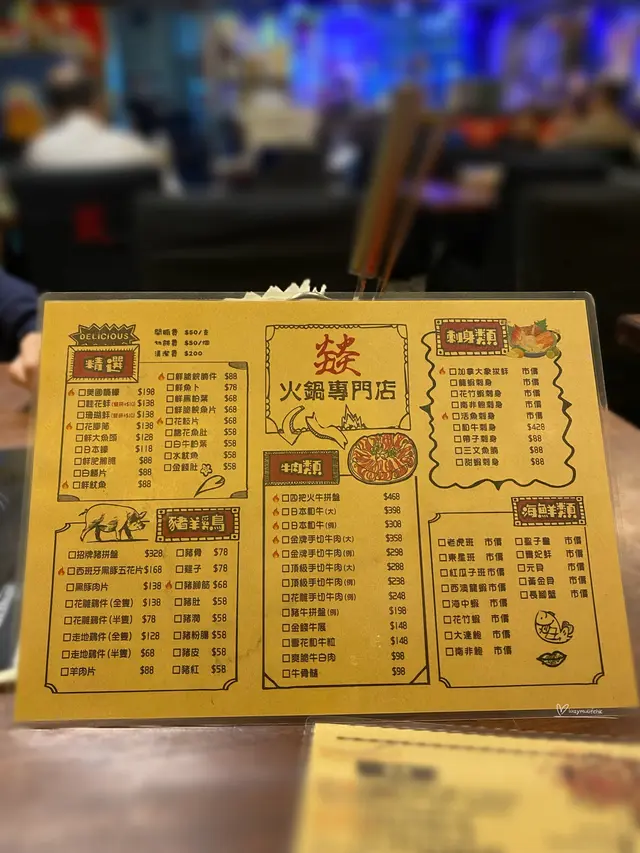 DELICIOUS
精選
開瓶費 $50/支
切餅費 $50/個
$200
□美國 $198
□桂花蚌 $138
□珊瑚蚌 $138
□花膠筒 $138
□鮮大魚頭 $128
□日本 $118
□鮮肥 $88
□白鱔片 $88
□鮮魷魚 $88
□鮮 $88
□鮮魚卜 $78
□鮮黑柏葉 $68
□鮮 魚片 $68
□花枝片 $68
□ 花魚肚 $58
□白牛柏葉 $58
□水魷魚 $58
□金錢肚 $58
豬羊雞鳥
□招牌豬拼盤 $328
□西班牙黑豚五花片 $168
□黑豚肉片 $138
□花雕鷄件(全隻) $138
□花雕鷄件(半隻) $78
□走地鷄件(全隻) $128
□走地鷄件(半隻) $68
□羊肉片 $88
□豬骨 $78
□雞子 $78
□豬腳筋 $68
□豬肚 $58
□豬潤 $58
□豬粉腸 $58
□豬皮 $58
□豬紅 $58
燚
火鍋專門店
牛肉類
□四把火牛拼盤 $468
□日本和牛(大) $398
□日本和牛(例) $308
□金牌手切牛肉(大) $358
□金牌手切牛肉(例) $298
□頂級手切牛肉(大) $288
□頂級手切牛肉(例) $238
□花雕手切牛肉(例) $248
□豬牛拼盤(例) $198
□金錢牛𦟌 $148
□雪花和牛粒 $148
□爽脆牛白肉 $98
□牛骨髓 $98
刺身類
□加拿大象拔蚌 市價
□龍蝦刺身 市價
□花竹蝦刺身 市價
□南非鮑刺身 市價
□活魚刺身 市價
□和牛刺身 $428
□帶子刺身 $88
□三文魚腩 $88
□甜蝦刺身 $88
海鮮類
□老虎斑 市價
□東星斑 市價
□紅瓜子斑 市價
□西澳龍蝦 市價
□海中蝦 市價
□花竹蝦 市價
□大連鮑 市價
□南非鮑 市價
□聖子皇 市價
□貴妃蚌 市價
□元貝 市價
□黃金貝 市價
□長腳蟹 市價